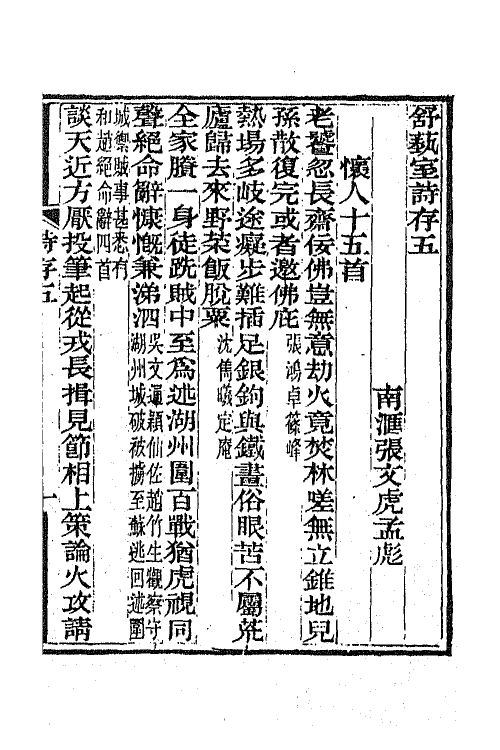 舒藝室詩存五
南滙張文虎孟彪
懷人十五首
老饕忽長齋佞佛豈無意劫火竟焚林嗟無立錐地兒
孫散復完或者邀佛庇張鴻卓篠峰
熱場多岐途癡步難插足銀鉤與鐵畫俗眼苦不屬茺
廬歸去來野菜飯脫粟沈儒曦定庵
全家賸一身徒跣賊中至爲述湖州圍百戰猶虎視同
聲絕命辭慷慨兼涕泗吳文通穎仙佐趙竹生觀察守湖州城破被擄至蘇逃回述圍
城禦賊事甚悉有和趙絕命辭四首
談天近方厭投筆起從戎長揖見節相上策論火攻請
詩存五
一